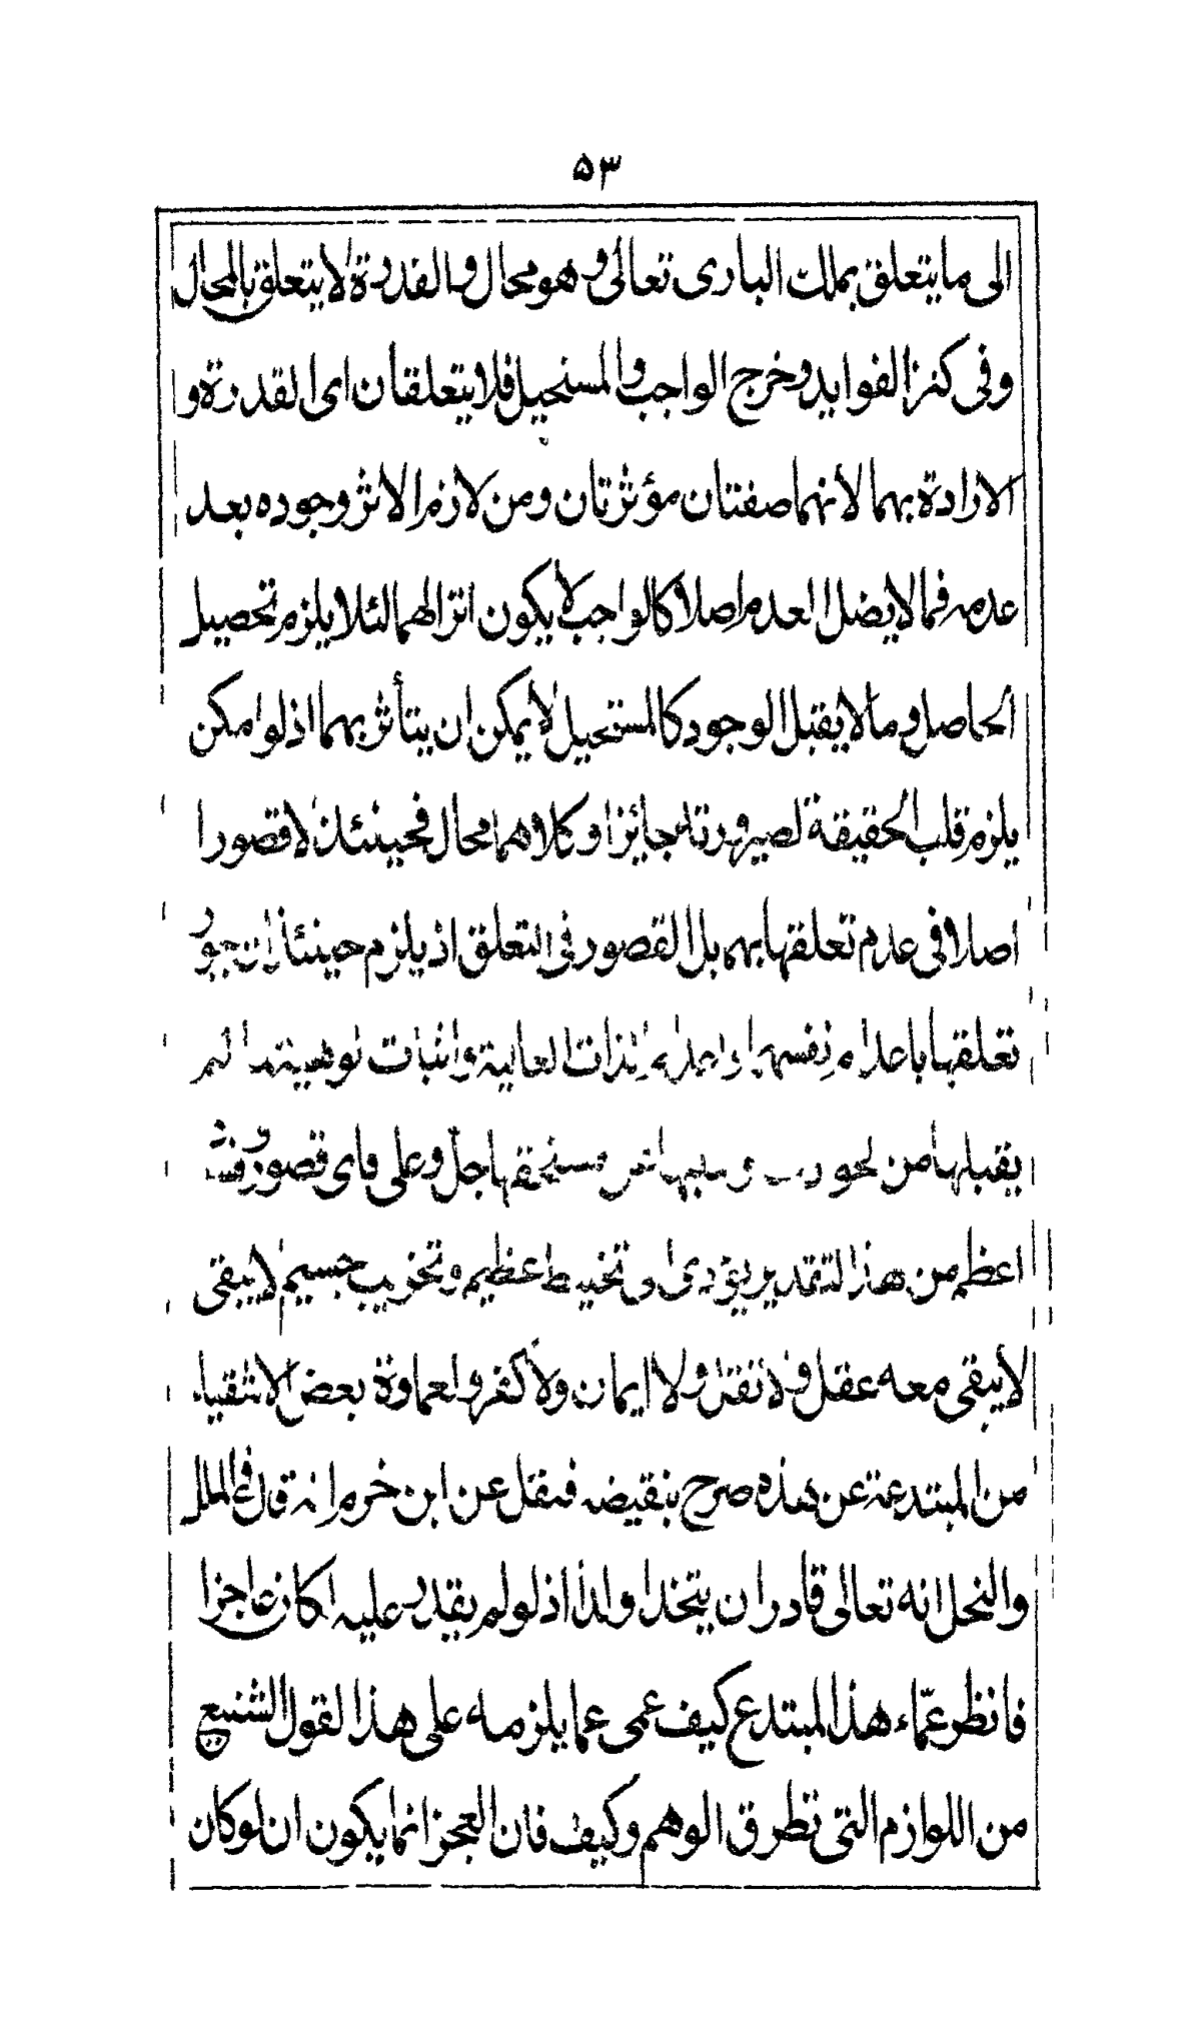 ۵۳
الى ما يتعلق بملك البارى تعالى وهو محال والقدرة لا يتعلق بالمحال
وفى كنز الفوايد وخرج الواجب والمستحيل فلا يتعلقان اى القدرة و
الارادة بهما لأنهما صفتان مؤثرتان ومن لازم الاثر وجوده بعد
عدمه فما لا يضل العدم اصلا كالواجب لا يكون اثرا لهما لئلا يلزم تحصيل
الحاصل وما لا يقبل الوجود كالمستحيل لا يمكن ان يتأثر بهما اذ لو امكن
يلزم قلب الحقيقة لصيرورته جائزا وكلاهما محال فحينئذ لا قصورا
اصلا فى عدم تعلقها بهما بل القصور فى التعلق اذ يلزم حينئذ ان يجوز
تعلقها باعدام نفسها واعدام الذات العالية واثبات الوهية لم
يقبلها من مستحقها جل وعلى فاى قصور
اعظم من هذا التقدير يؤدى تخيط عظيم وتخريب جسيم لا يبقى
لا يبقى معه عقل ولا نقل ولا ايمان ولا كفر ولعماوة بعض الاشقياء
من المبتدعة عن هذه صرح بنقيضه فنقل عن ابن خرم انه قال فى الملل
والنحل انه تعالى قادر ان يتخذ ولدا اذ لو لم يقدر عليه لكان عاجزا
فانظر عمّاء هذا المبتدع كيف عمى عما يلزمه على هذا القول الشنيع
من اللوازم التى تطرق الوهم وكيف فان العجز انما يكون ان لو كان